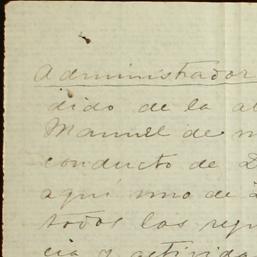 Administrador
dido de la al
Manuel de m
conducto de
aquí uno de
todos los requ
cia y activida